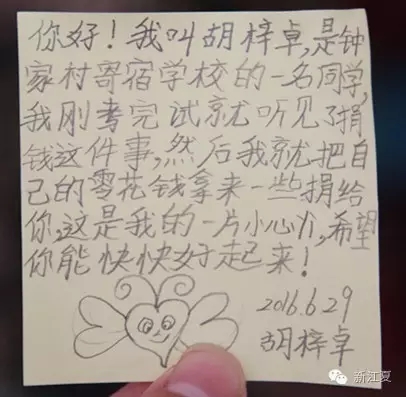 你好！我叫胡梓卓，是钟
家村寄宿学校的一名同学，
我刚考完试就听见了捐
钱这件事，然后我就把自
己的零花钱拿来一些捐给
你，这是我的一片小心心，希望
你能快快好起来！
2016.6.29
胡梓卓
新江夏